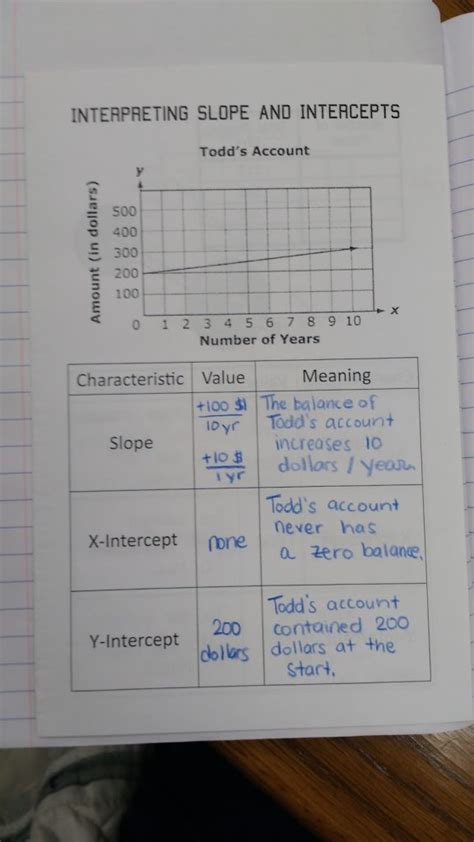 INTERPRETING SLOPE AND INTERCEPTS
Todd's Account
y
Amount (in dollars)
500
400
300
200
100
x
0 1 2 3 4 5 6 7 8 9 10
Number of Years
Characteristic Value Meaning
Slope
+100 $
10 yr
+10 $
1 yr
The balance of
Todd's account
increases 10
dollars / year.
X-Intercept
none
Todd's account
never has
a zero balance.
Y-Intercept
200
dollars
Todd's account
contained 200
dollars at the
start.